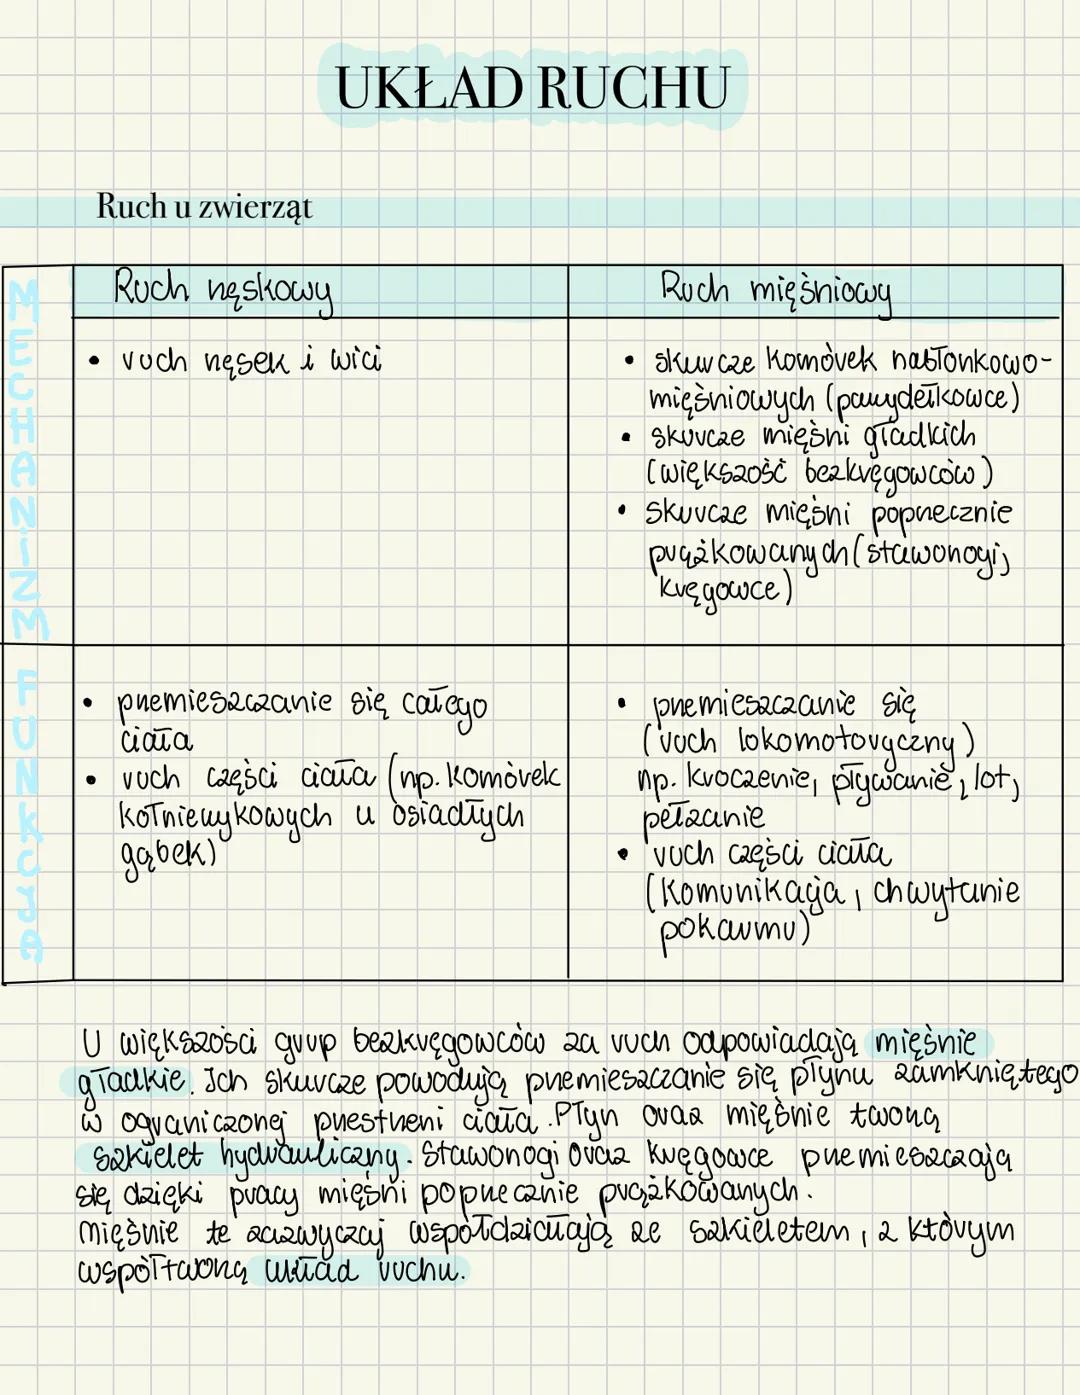 UKŁAD RUCHU
Ruch u zwierząt
MECHANIZM
Ruch rzęskowy
• ruch rzęsek i wici
Ruch mięśniowy
• skurcze komórek nabłonkowo-
mięśniowych (parzydełkowce)
• skurcze mięśni gładkich
(większość bezkręgowców)
• skurcze mięśni poprzecznie
prążkowanych (stawonogi,
kręgowce)
FUNKCJA
• przemieszczanie się całego
ciała
• ruch części ciała (np. komórek
kołnierzykowych u osiadłych
gąbek)
• przemieszczanie się
(ruch lokomotoryczny)
np. kroczenie, pływanie, lot,
pełzanie
• ruch części ciała
(komunikacja, chwytanie
pokarmu)
U większości grup bezkręgowców za ruch odpowiadają mięśnie
gładkie. Ich skurcze powodują przemieszczanie się płynu zamkniętego
w ograniczonej przestrzeni ciała. Płyn oraz mięśnie tworzą
szkielet hydrauliczny. Stawonogi oraz kręgowce przemieszczają
się dzięki pracy mięśni poprzecznie prążkowanych.
Mięśnie te zazwyczaj współdziałają ze szkieletem, z którym
współtworzą układ ruchu.